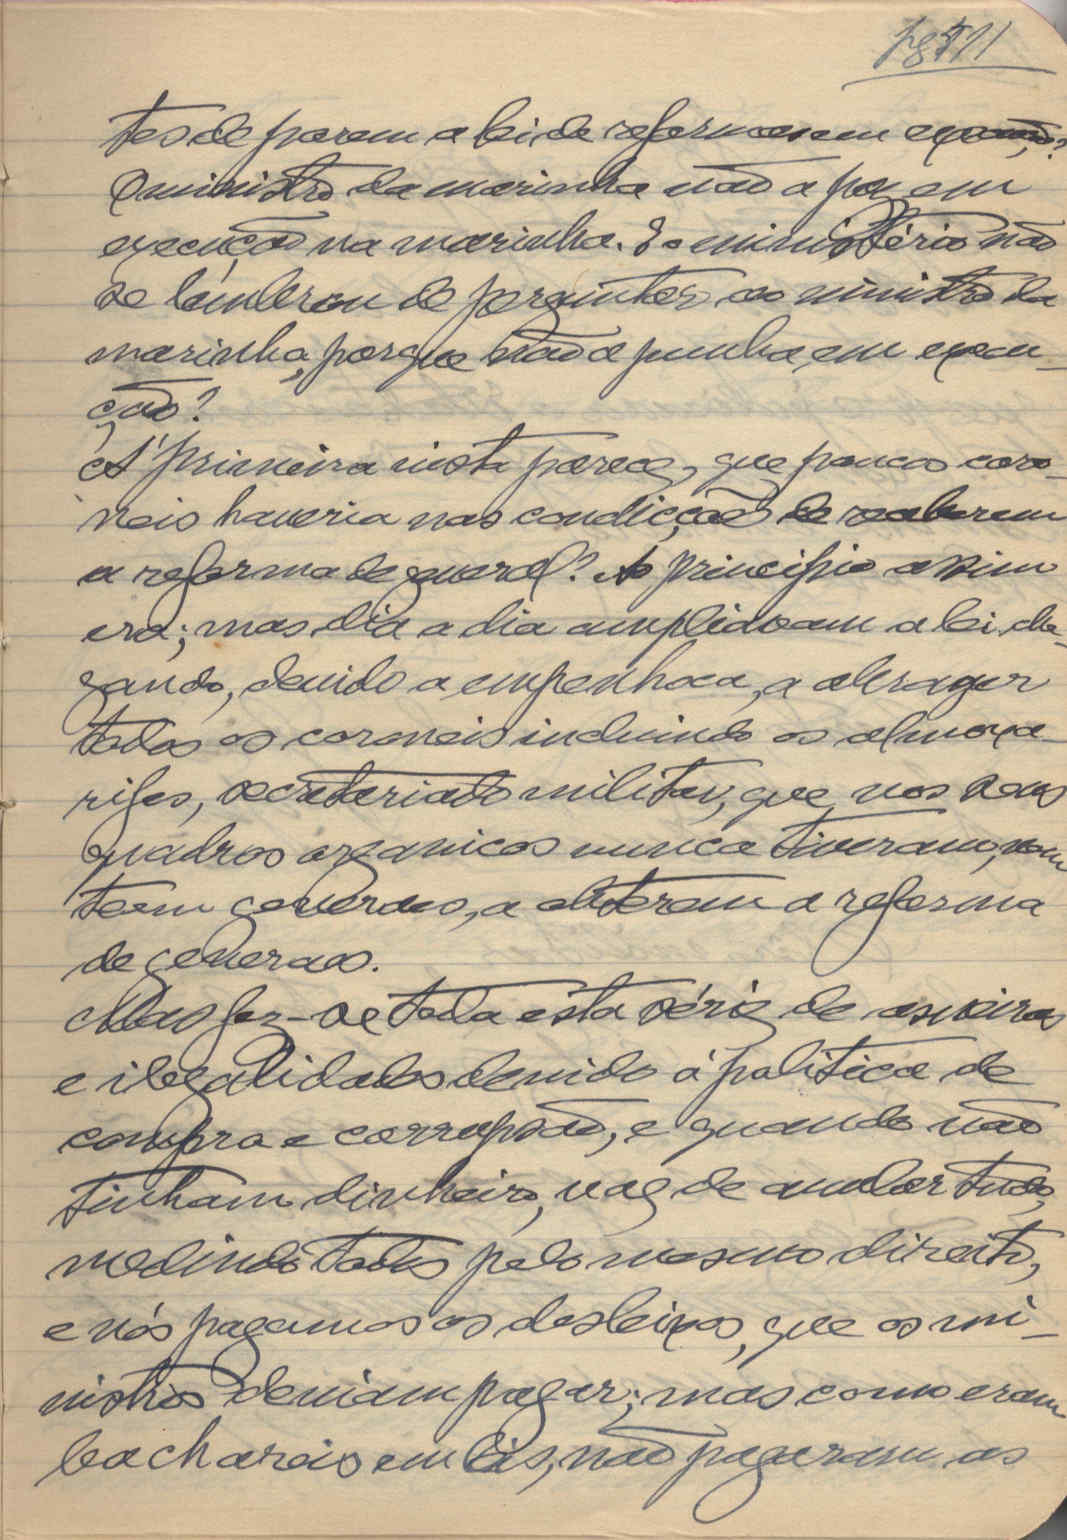 tes de porem a lei de reformas em
O ministro da marinha não a poz em
execução na marinha. E o ministério não
se lembrou de perguntar ao ministro da
marinha, porque não a punha, em execu-
ção?
A' primeira vista parece, que poucos coro-
neis haveria nas condicções de receberem
a reforma de general? Ao principio assim
era; mas dia a dia ampliavam a lei, che-
gando, devido a empenhoca, a abranger
todos os coroneis incluindo os almoxa-
rifes, secretariado militar, que, nos seus
quadros organicos nunca tiveram, nem
teem generaes, a obterem a reforma
de generaes.
Mas fez-se toda esta série de asneiras
e ilegalidades devido á politica de
compra e corrupsão, e quando não
tinham dinheiro, de anular tudo,
medindo todos pelo mesmo direito,
e nós pagamos os desleixos, que os mi-
nistros deviam pagar; mas como eram
bachareis em leis, não pagaram as